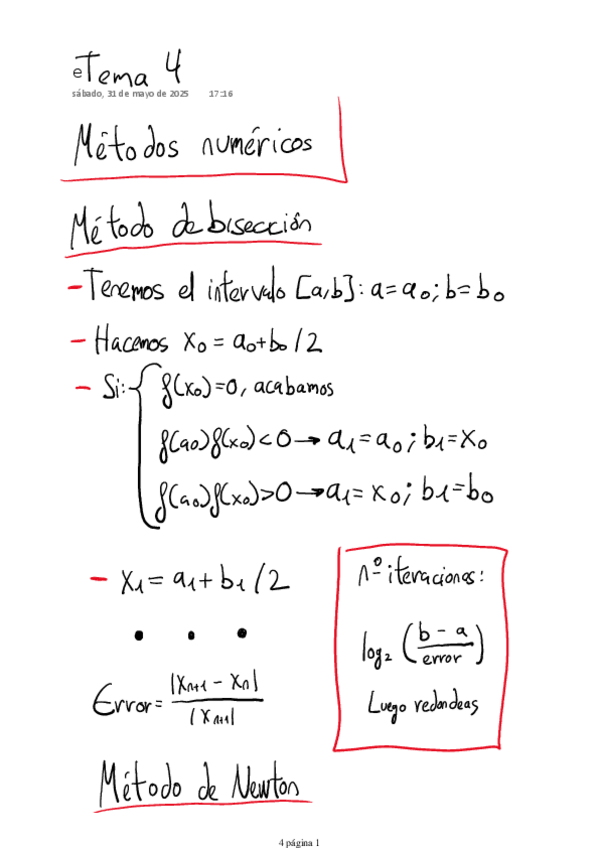 eTema 4
sábado, 31 de mayo de 2025 17:16
Métodos numéricos
Método de bisección
- Tenemos el intervalo [a,b]: a=a₀; b=b₀
- Hacemos x₀ = a₀+b₀/2
- Si: { f(x₀)=0, acabamos
f(a₀)f(x₀)<0 → a₁=a₀; b₁=x₀
f(a₀)f(x₀)>0 → a₁=x₀; b₁=b₀
- x₁ = a₁+b₁/2
• • •
Error = |xₙ₊₁ - xₙ| / |xₙ₊₁|
nº iteraciones:
log₂ (b - a / error)
Luego redondeas
Método de Newton
4 página 1